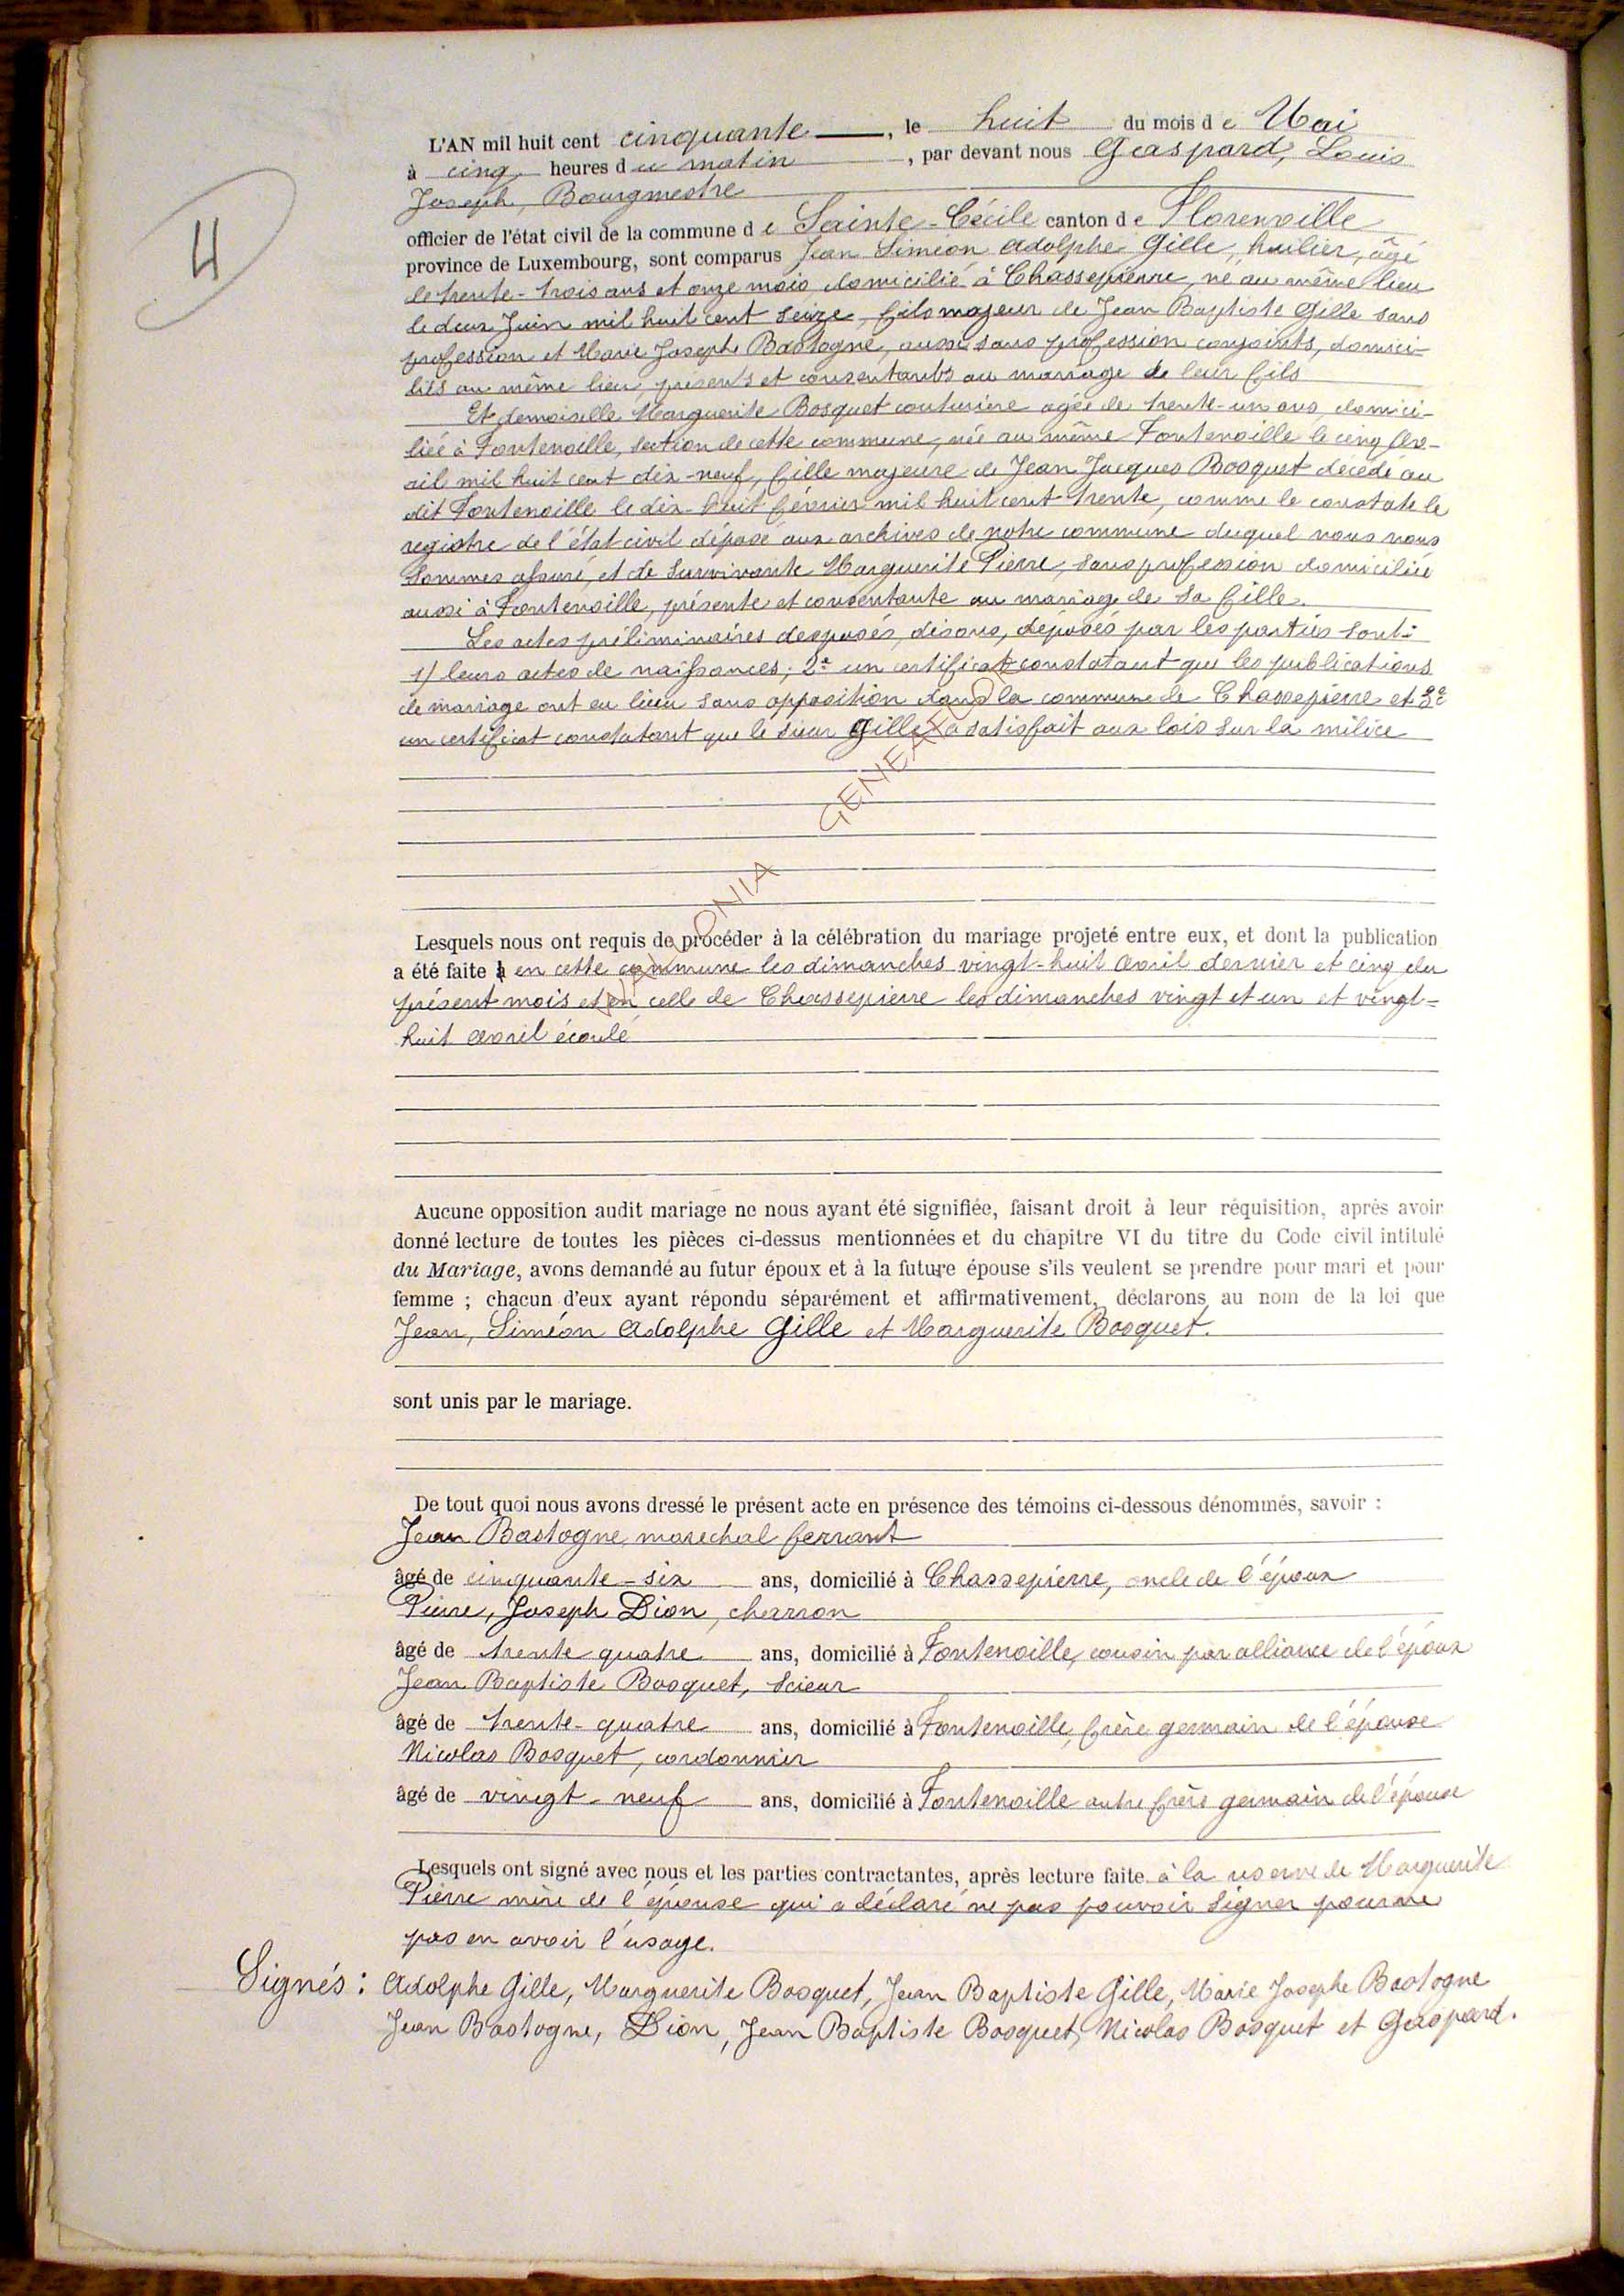 4
L'AN mil huit cent cinquante, le huit du mois de Mai
à cinq heures du matin, par devant nous Gaspard, Louis
Joseph, Bourgmestre
officier de l'état civil de la commune de Sainte-Cécile canton de Florenville
province de Luxembourg, sont comparus Jean Siméon Adolphe Gille, huilier, âgé
de trente-trois ans et onze mois, domicilié à Chassepierre, né au même lieu
le deux Juin mil huit cent seize, fils majeur de Jean Baptiste Gille sans
profession et Marie Joseph Bastogne, aussi sans profession conjoints, domici-
liés au même lieu, présents et consentants au mariage de leur fils
Et demoiselle Marguerite Bosquet couturière agée de trente-un ans, domici-
liée à Fontenoille, section de cette commune, née au même Fontenoille le cinq Av-
ril mil huit cent dix-neuf, fille majeure de Jean Jacques Bosquet décédé au
dit Fontenoille le dix-huit février mil huit cent trente, comme le constate le
registre de l'état civil déposé aux archives de notre commune duquel nous nous
sommes assuré, et de survivante Marguerite Pierre, sans profession domiciliée
aussi à Fontenoille, présente et consentante au mariage de sa fille.
Les actes préliminaires desposés, disons, déposés par les parties sont:
1/ leurs actes de naissances; 2e un certificat constatant que les publications
de mariage ont eu lieu sans opposition dans la commune de Chassepierre et 3e
un certificat constatant que le sieur Gille a satisfait aux lois sur la milice
Lesquels nous ont requis de procéder à la célébration du mariage projeté entre eux, et dont la publication
a été faite à en cette commune les dimanches vingt-huit Avril dernier et cinq du
présent mois et en celle de Chassepierre les dimanches vingt et un et vingt-
huit Avril écoulé
Aucune opposition audit mariage ne nous ayant été signifiée, faisant droit à leur réquisition, après avoir
donné lecture de toutes les pièces ci-dessus mentionnées et du chapitre VI du titre du Code civil intitulé
du Mariage, avons demandé au futur époux et à la future épouse s'ils veulent se prendre pour mari et pour
femme ; chacun d'eux ayant répondu séparément et affirmativement, déclarons au nom de la loi que
Jean, Siméon Adolphe Gille et Marguerite Bosquet.
sont unis par le mariage.
De tout quoi nous avons dressé le présent acte en présence des témoins ci-dessous dénommés, savoir :
Jean Bastogne, marechal ferrant
âgé de cinquante-six ans, domicilié à Chassepierre, oncle de l'époux
Pierre, Joseph Dion, charron
âgé de trente quatre ans, domicilié à Fontenoille, cousin par alliance de l'époux
Jean Baptiste Bosquet, scieur
âgé de trente-quatre ans, domicilié à Fontenoille, frère germain de l'épouse
Nicolas Bosquet, cordonnier
âgé de vingt-neuf ans, domicilié à Fontenoille autre frère germain de l'épouse
Lesquels ont signé avec nous et les parties contractantes, après lecture faite. à la reserve de Marguerite
Pierre mère de l'épouse qui a déclaré ne pas pouvoir signer pour ne
pas en avoir l'usage.
Signés : Adolphe Gille, Marguerite Bosquet, Jean Baptiste Gille, Marie Josephe Bastogne
Jean Bastogne, Dion, Jean Baptiste Bosquet, Nicolas Bosquet et Gaspard.